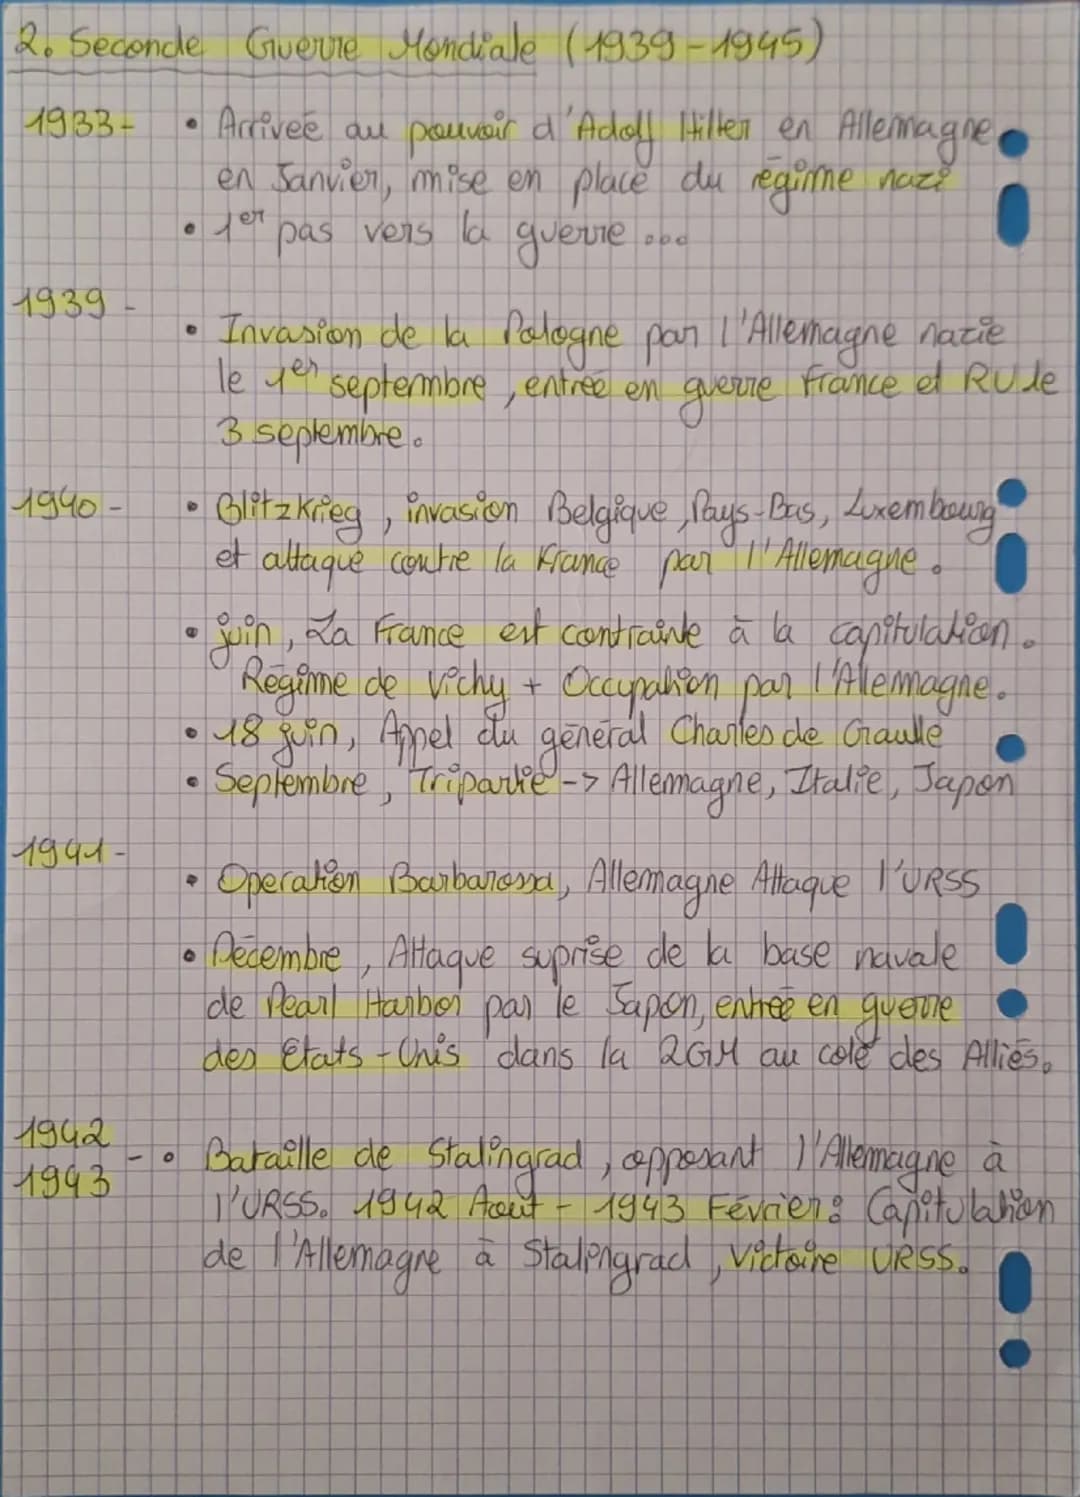 2. Seconde Guerre Mondiale (1939-1945)
1933- • Arrivée au pouvoir d'Adolf Hitler en Allemagne
en Janvier, mise en place du régime nazi
• 1er pas vers la guerre ...
1939 -
• Invasion de la Pologne par l'Allemagne nazie
le 1er septembre, entrée en guerre France et RU le
3 septembre.
1940 - • Blitzkrieg, invasion Belgique, Pays-Bas, Luxembourg
et attaque contre la France par l'Allemagne.
• juin, La France est contrainte à la capitulation.
Régime de Vichy + Occupation par l'Allemagne.
• 18 juin, Appel du général Charles de Gaulle
• Septembre, Tripartie -> Allemagne, Italie, Japon
1941-
• Operation Barbarossa, Allemagne Attaque l'URSS
• Décembre, Attaque suprise de la base navale
de Pearl Harbor par le Japon, entrée en guerre
des Etats-Unis dans la 2GM au coté des Alliés.
1942
1943 - • Bataille de Stalingrad, opposant l'Allemagne à
l'URSS. 1942 Aout - 1943 Février: Capitulation
de l'Allemagne à Stalingrad, victoire URSS.